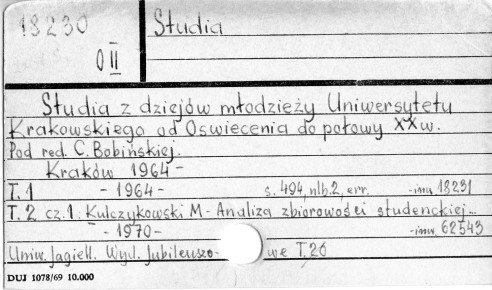 18230
Studia
O II
Studia z dziejów młodzieży Uniwersytetu
Krakowskiego od Oswiecenia do połowy XX w.
Pod red. C. Bobińskiej.
Kraków 1964-
T. 1 - 1964 - s. 494, nlb. 2, err. -inw. 18231
T. 2 cz. 1. Kulczykowski M - Analiza zbiorowości studenckiej...
- 1970 - -inw. 62543
Uniw. Jagiell. Wyd. Jubileuszo- we T. 20
DUJ 1078/69 10.000